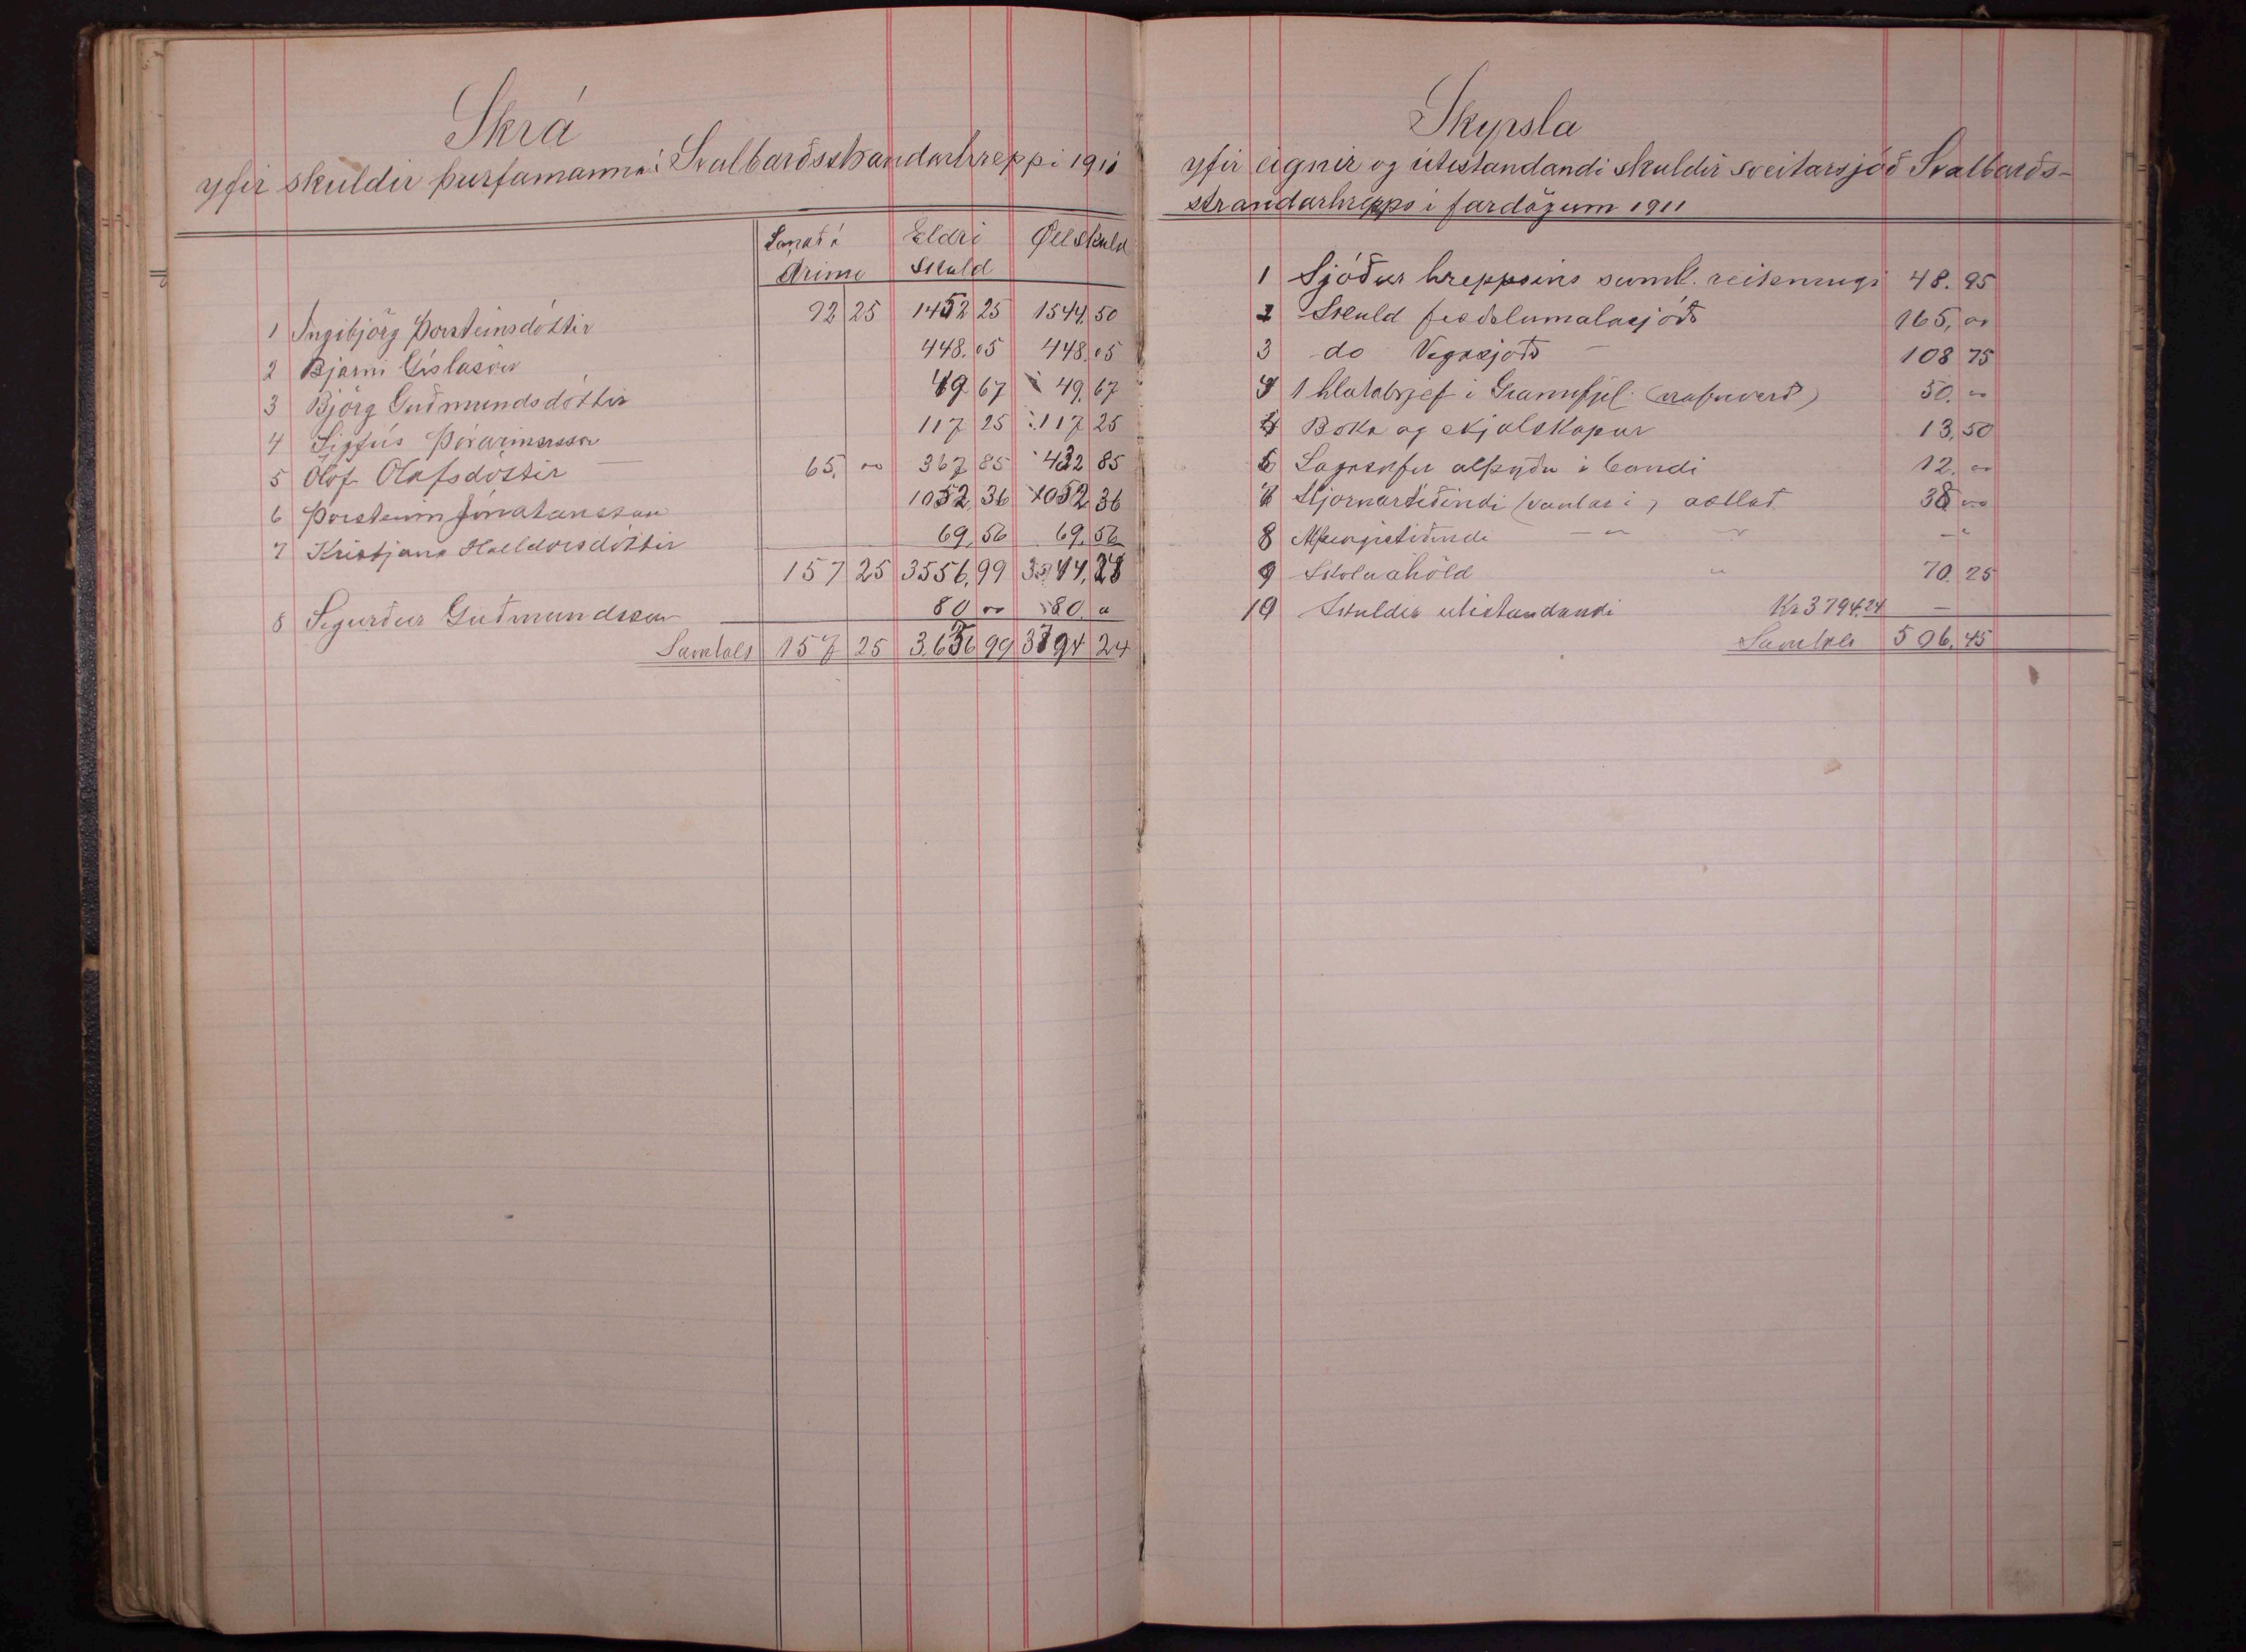 Skrá
yfir skuldir þurfamanna í Svalbarðsstrandarhreppi 1911
Lánað á Eldri Öll skuld
árinu Skuld
1 Ingibjörg Þorsteinsdóttir 92 25 1452 25 1544, 50
2 Bjarni Gíslason 448. 05 448. 05
3 Björg Guðmundsdóttir 49. 67 49, 67
4 Sigfús Þórarinsson 117 25 117 25
5 Ólöf Ólafsdóttir 65, 00 367 85 432 85
6 Þorsteinn Jónatansson 1052, 36 1052 36
7 Kristjana Halldorsdóttir 69, 56 69. 56
157 25 3556, 99
8 Sigurður Guðmundsson 80 00 80.
Samtals 157 25 3.636 99 3794 24
Skýrsla
yfir eignir og útistandandi skuldir sveitarsjóð Svalbarðs-
strandarhrepps í fardögum 1911
1 Sjóður hreppsins saml. reikningi 48. 95
2 Skuld 165, 00
3 do Vegasjóðs 108 75
1 hlutabrjef i Granufjel. 50. 00
Boka og skjalskapur 13, 50
alþyðu i bandi 12. 00
Stjornartiðindi (vantar i) 38 00
8
9 Skoluahöld " 70. 25
10 Skuldir utistandandi Kr 3794.24 —
Samtals 506, 45